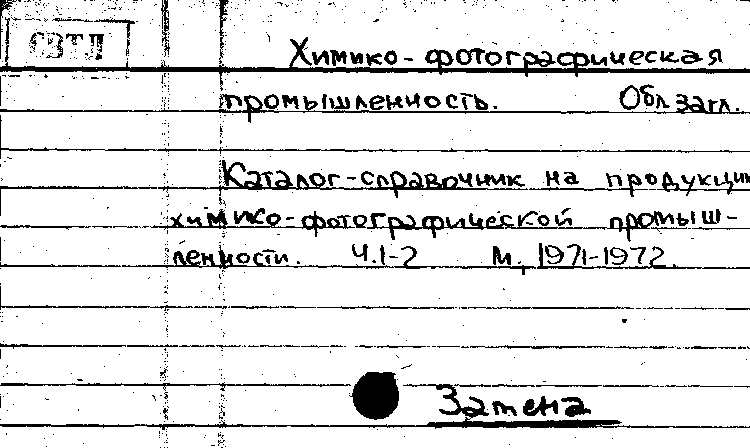 СВТЛ
Химико-фотографическая
промышленность. Обл. загл.
Каталог-справочник на продукцию
химико-фотографической промыш-
ленности. Ч.1-2 М., 1971-1972.
Замена